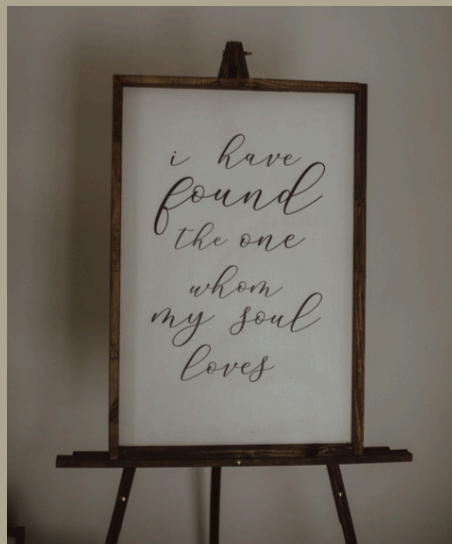 i have
found
the one
whom
my soul
loves